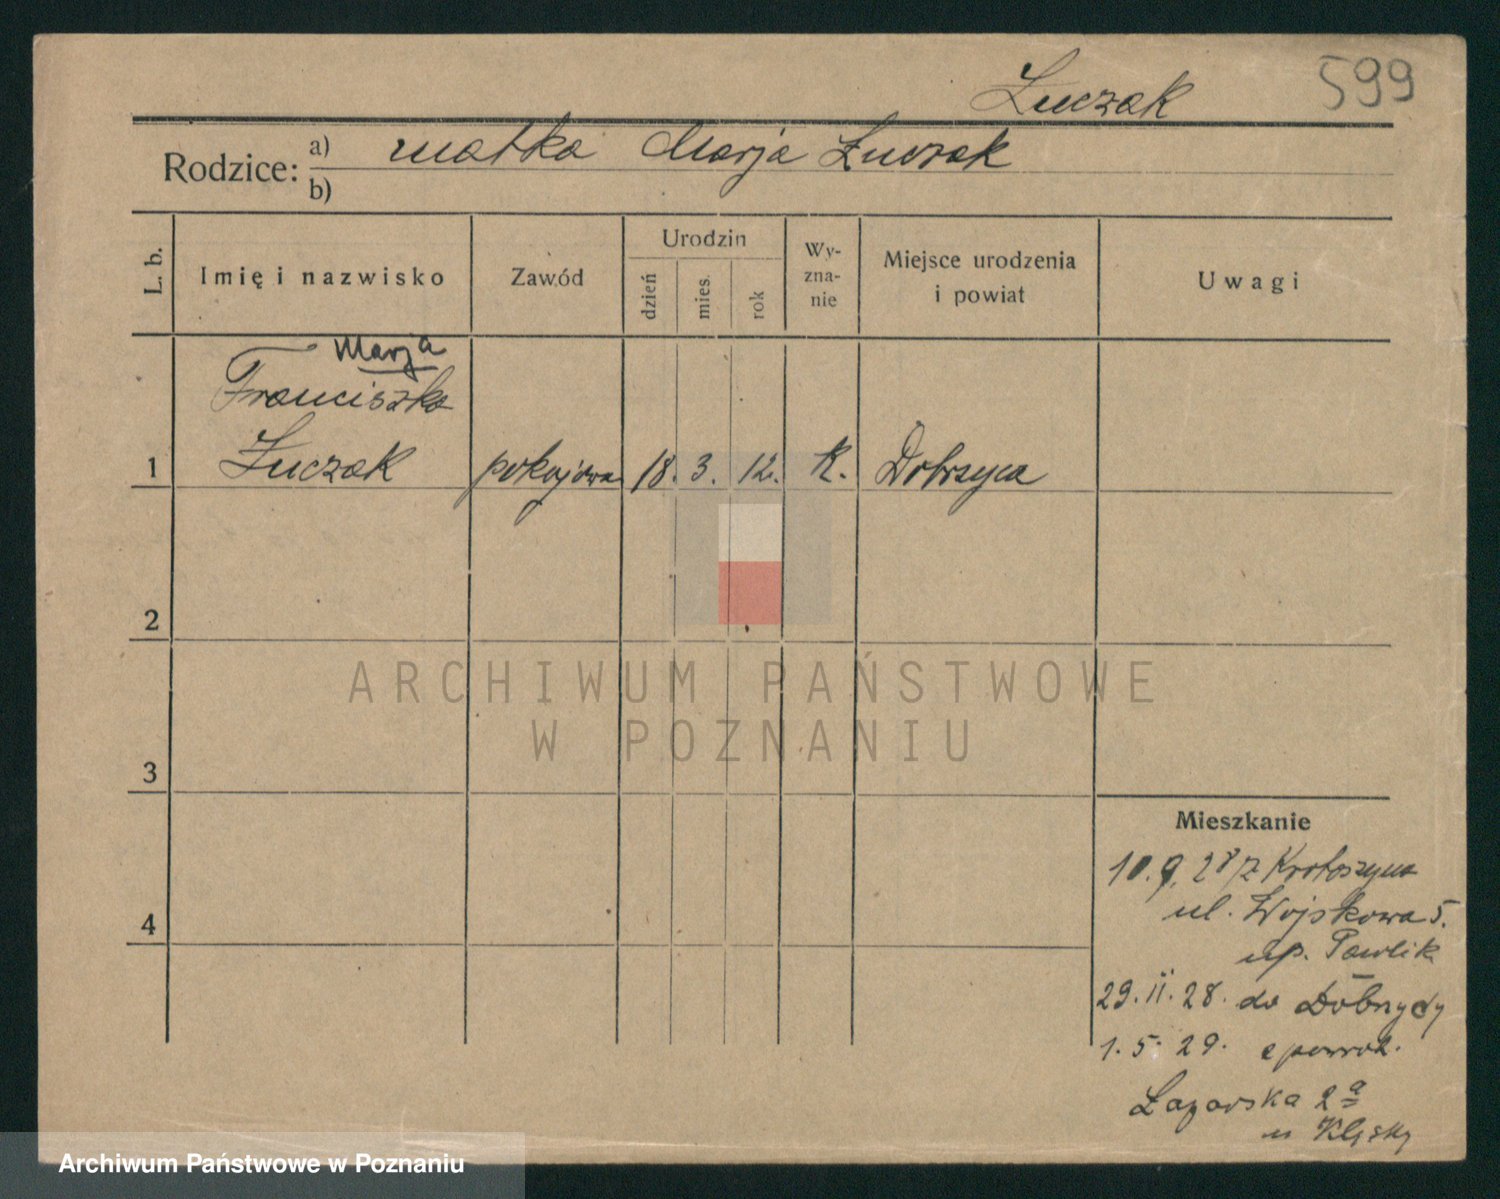 Łuczak
599
Rodzice: a) matka Marja Łuczak
b)
L. b.
Imię i nazwisko
Zawód
Urodzin
dzień
mies.
rok
Wy-
zna-
nie
Miejsce urodzenia
i powiat
Uwagi
Marja
Franciszka
1 Łuczak pokojowa 18. 3. 12. K. Dobrzyca
2
ARCHIWUM PAŃSTWOWE
W POZNANIU
3
Mieszkanie
10.9.28 z Krotoszyna
ul. Wojskowa 5.
up. Pawlik
4
29.II.28. do Dobrzycy
1.5.29. z powrot.
Łazarska 2a
u
Archiwum Państwowe w Poznaniu